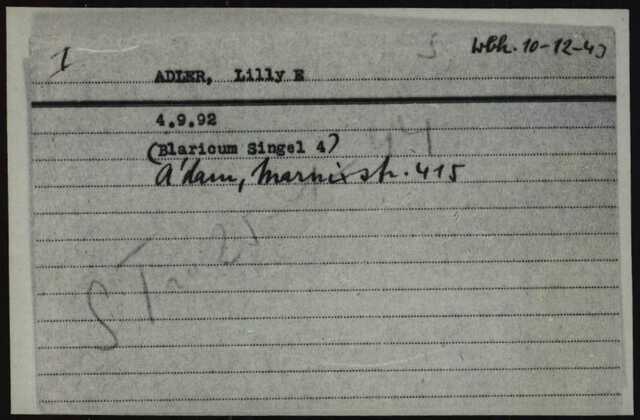 I
S
Wbk. 10-12-43
ADLER, Lilly E
4.9.92
(Blaricum Singel 4)
A'dam, Marnixstr. 415